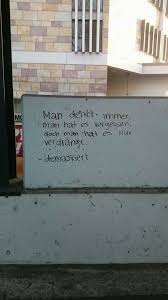 Man denkt immer,
man hat es vergessen,
doch man hat es nur
verdrängt.
-demaskiert